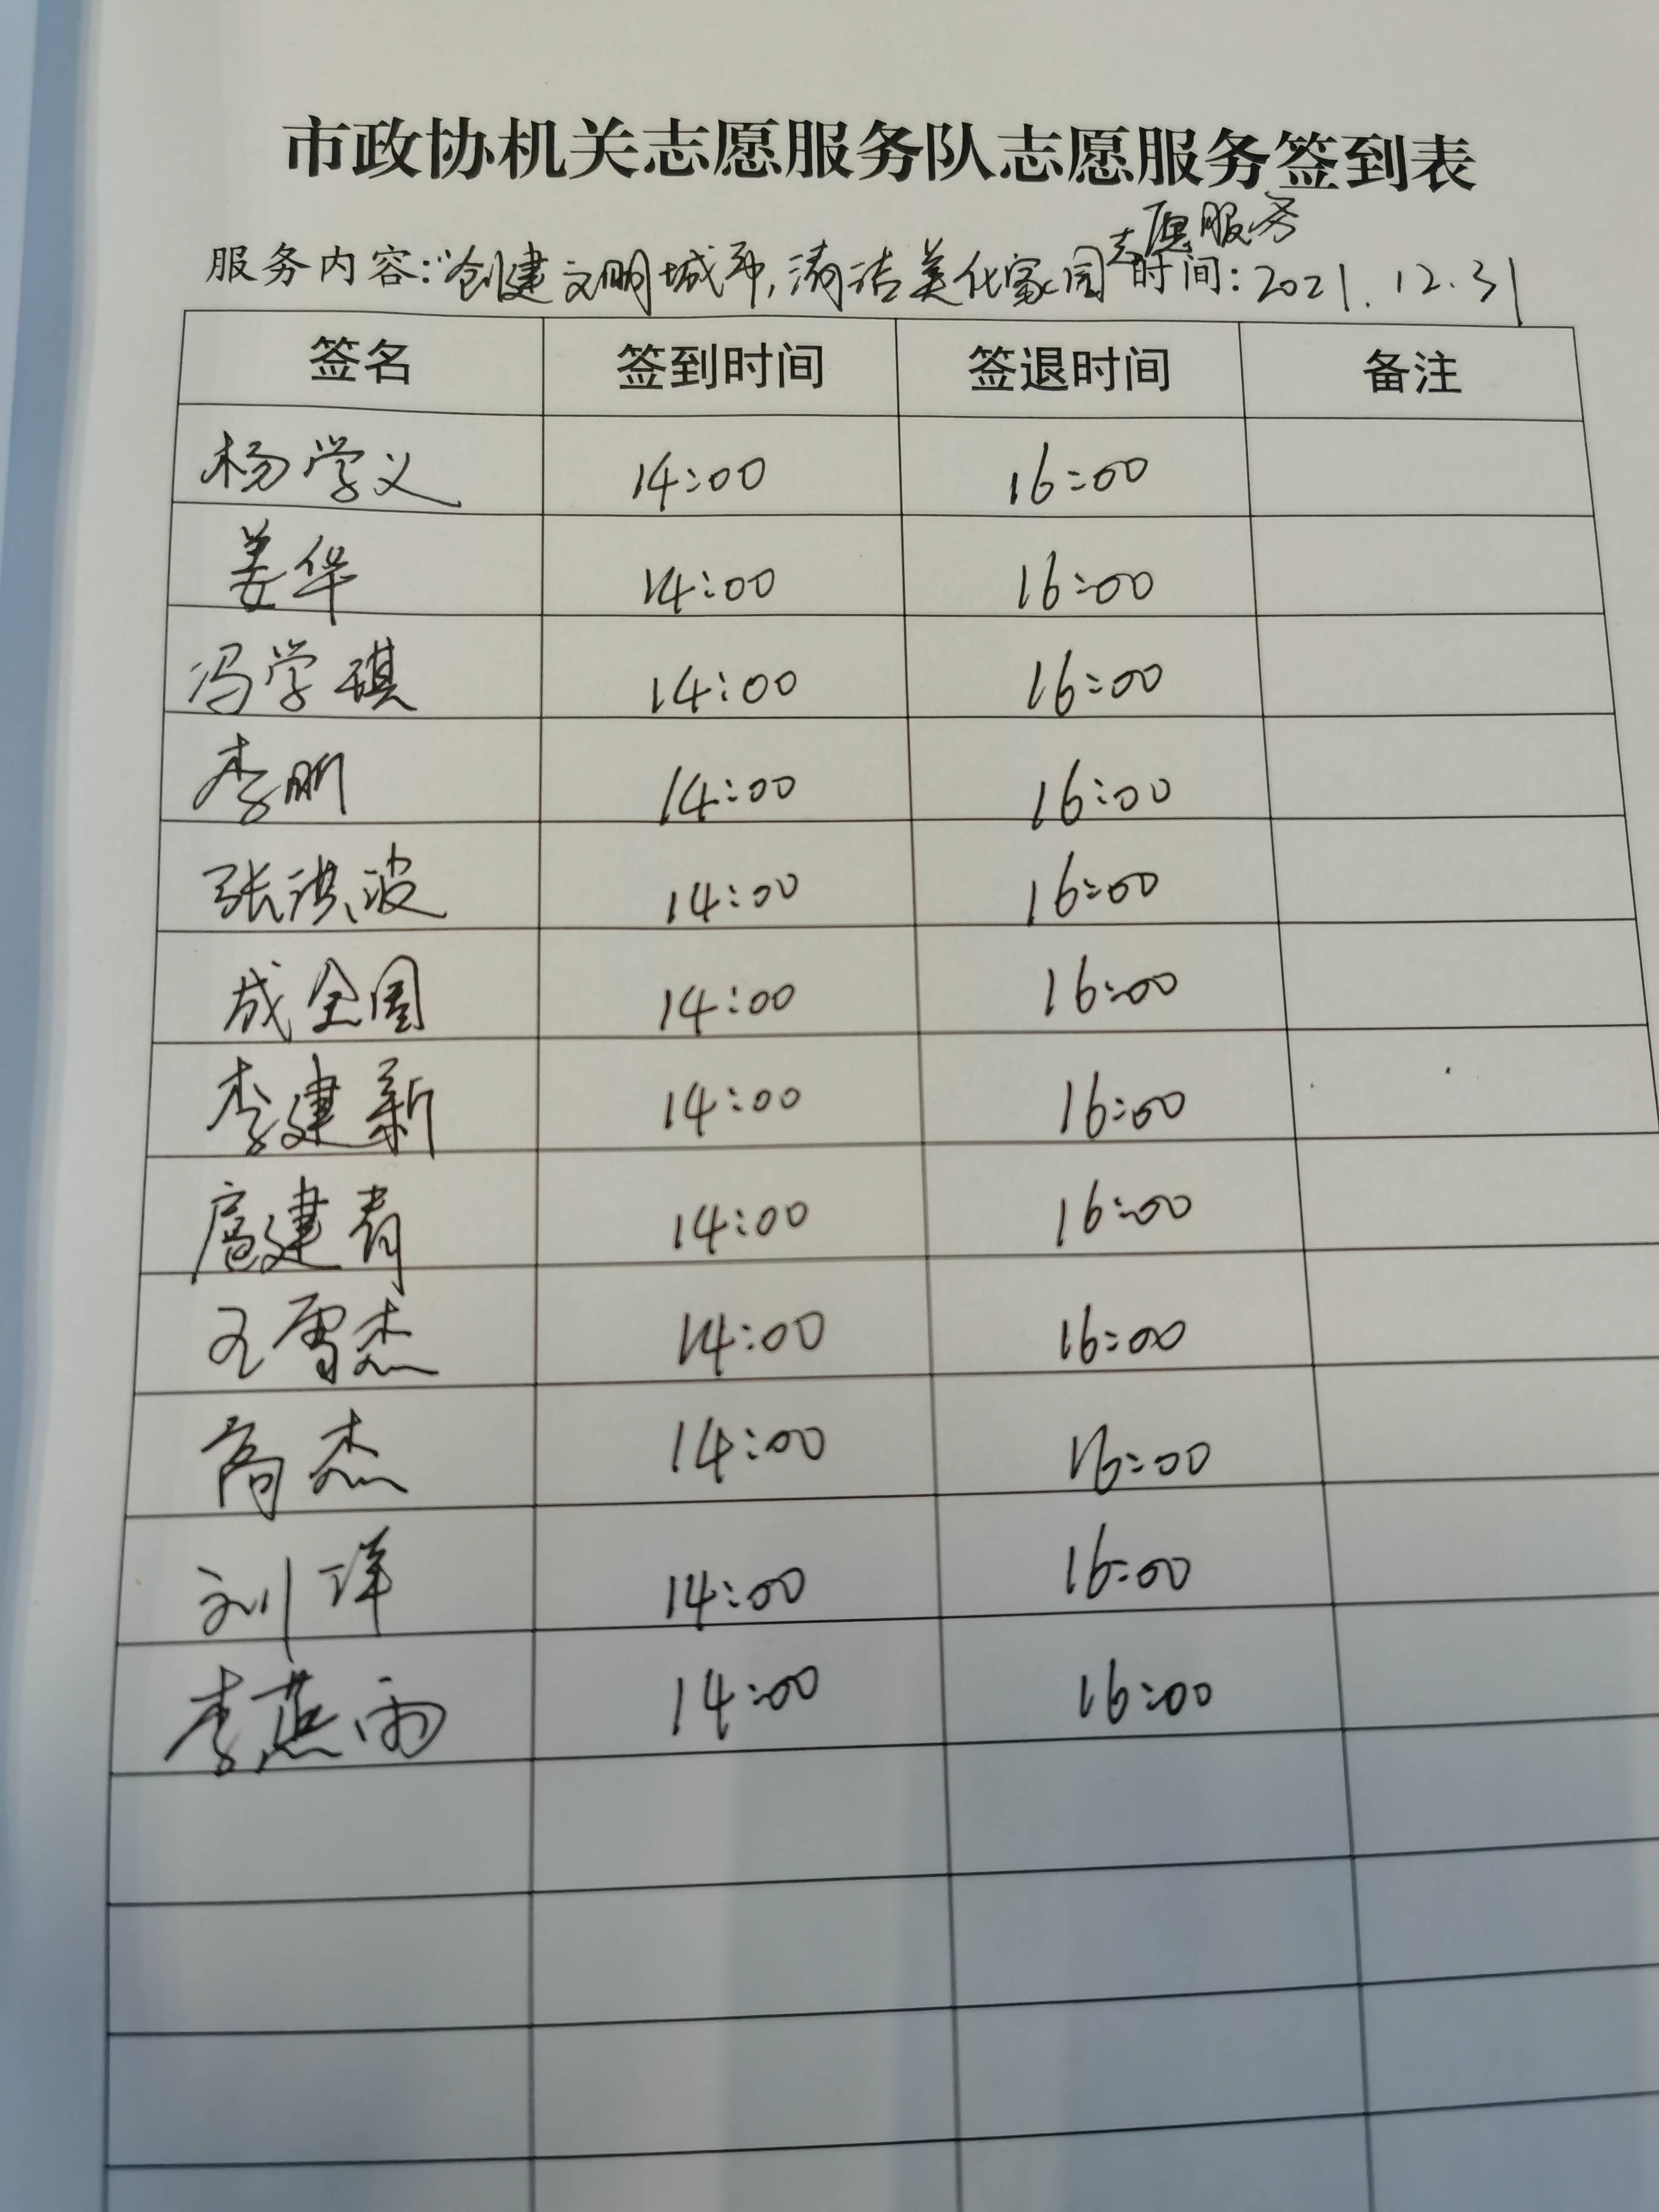 市政协机关志愿服务队志愿服务签到表
服务内容:“创建文明城市,清洁美化家园”志愿服务 时间:2021.12.31
签名 签到时间 签退时间 备注
杨学义 14:00 16:00
姜华 14:00 16:00
冯学琪 14:00 16:00
李明 14:00 16:00
张洪波 14:00 16:00
成全国 14:00 16:00
李建新 14:00 16:00
扈建青 14:00 16:00
王雪杰 14:00 16:00
高杰 14:00 16:00
刘洋 14:00 16:00
李燕雨 14:00 16:00